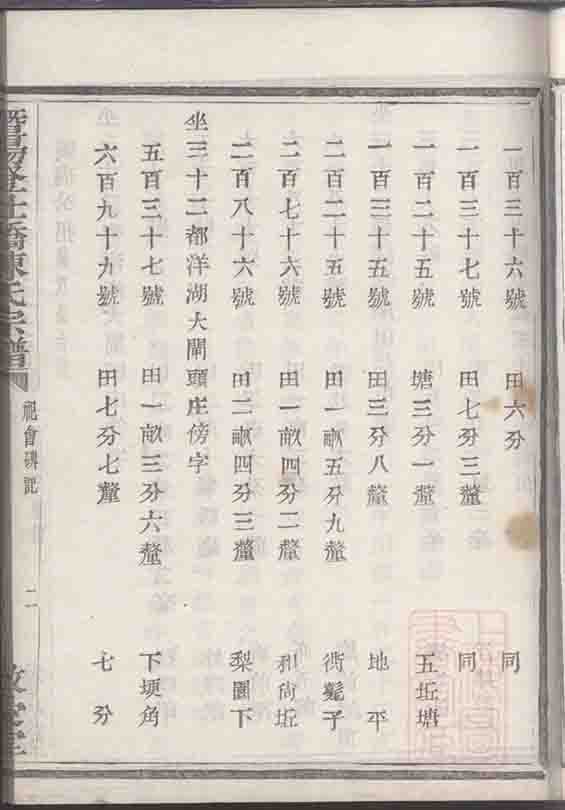 一百三十六號 田六分 同
一百三十七號 田七分三釐 同
一百二十五號 塘三分一釐 五坵塘
一百三十五號 田三分八釐 地平
二百二十五號 田一畝五分九釐 子
二百七十六號 田一畝四分二釐 和尚坵
二百八十六號 田二畝四分三釐 梨園下
坐三十二都洋湖大閘頭庄傍字
五百三十七號 田一畝三分六釐 下埂角
六百九十九號 田七分七釐 七分
暨陽 橋陳氏宗譜 祀會碑記 二